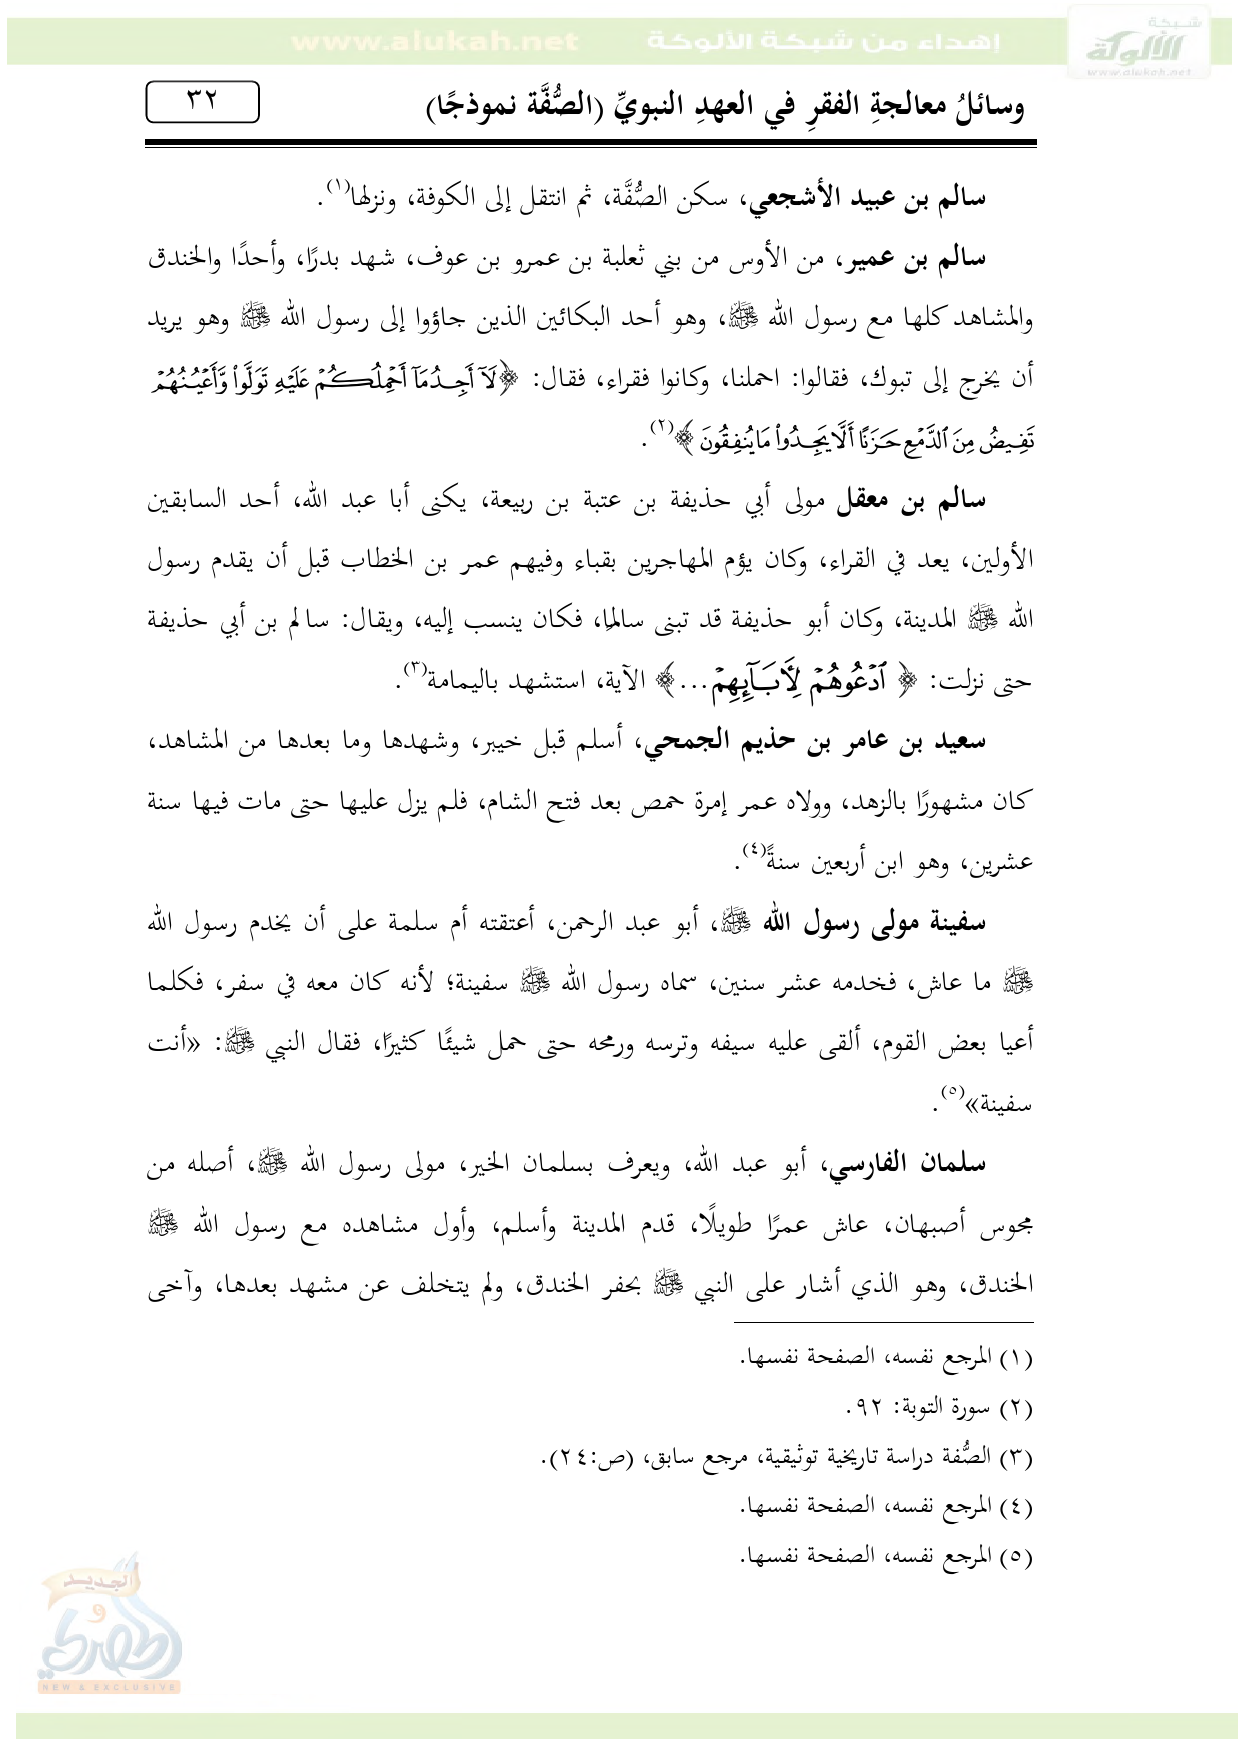 www.alukah.net إهداء من شبكة الألوكة
شبكة
الألوكة
www.alukah.net
وسائلُ معالجةِ الفقرِ في العهدِ النبويِّ (الصُّفَّة نموذجًا) ٣٢
سالم بن عبيد الأشجعي، سكن الصُّفَّة، ثم انتقل إلى الكوفة، ونزلها(١).
سالم بن عمير، من الأوس من بني ثعلبة بن عمرو بن عوف، شهد بدرًا، وأحدًا والخندق
والمشاهد كلها مع رسول الله ﷺ، وهو أحد البكائين الذين جاؤوا إلى رسول الله ﷺ وهو يريد
أن يخرج إلى تبوك، فقالوا: احملنا، وكانوا فقراء، فقال: ﴿لَآ أَجِدُ مَآ أَحۡمِلُكُمۡ عَلَيۡهِ تَوَلَّواْ وَّأَعۡيُنُهُمۡ
تَفِيضُ مِنَ ٱلدَّمۡعِ حَزَنًا أَلَّا يَجِدُواْ مَا يُنفِقُونَ﴾(٢).
سالم بن معقل مولى أبي حذيفة بن عتبة بن ربيعة، يكنى أبا عبد الله، أحد السابقين
الأولين، يعد في القراء، وكان يؤم المهاجرين بقباء وفيهم عمر بن الخطاب قبل أن يقدم رسول
الله ﷺ المدينة، وكان أبو حذيفة قد تبنى سالمِا، فكان ينسب إليه، ويقال: سالم بن أبي حذيفة
حتى نزلت: ﴿ ٱدۡعُوهُمۡ لِأَبَآئِهِمۡ...﴾ الآية، استشهد باليمامة(٣).
سعيد بن عامر بن حذيم الجمحي، أسلم قبل خيبر، وشهدها وما بعدها من المشاهد،
كان مشهورًا بالزهد، وولاه عمر إمرة حمص بعد فتح الشام، فلم يزل عليها حتى مات فيها سنة
عشرين، وهو ابن أربعين سنةً(٤).
سفينة مولى رسول الله ﷺ، أبو عبد الرحمن، أعتقته أم سلمة على أن يخدم رسول الله
ﷺ ما عاش، فخدمه عشر سنين، سماه رسول الله ﷺ سفينة؛ لأنه كان معه في سفر، فكلما
أعيا بعض القوم، ألقى عليه سيفه وترسه ورمحه حتى حمل شيئًا كثيرًا، فقال النبي ﷺ: «أنت
سفينة»(٥).
سلمان الفارسي، أبو عبد الله، ويعرف بسلمان الخير، مولى رسول الله ﷺ، أصله من
مجوس أصبهان، عاش عمرًا طويلًا، قدم المدينة وأسلم، وأول مشاهده مع رسول الله ﷺ
الخندق، وهو الذي أشار على النبي ﷺ بحفر الخندق، ولم يتخلف عن مشهد بعدها، وآخى
(١) المرجع نفسه، الصفحة نفسها.
(٢) سورة التوبة: ٩٢.
(٣) الصُّفة دراسة تاريخية توثيقية، مرجع سابق، (ص:٢٤).
(٤) المرجع نفسه، الصفحة نفسها.
(٥) المرجع نفسه، الصفحة نفسها.
الجديد
و
حصري
NEW & EXCLUSIVE